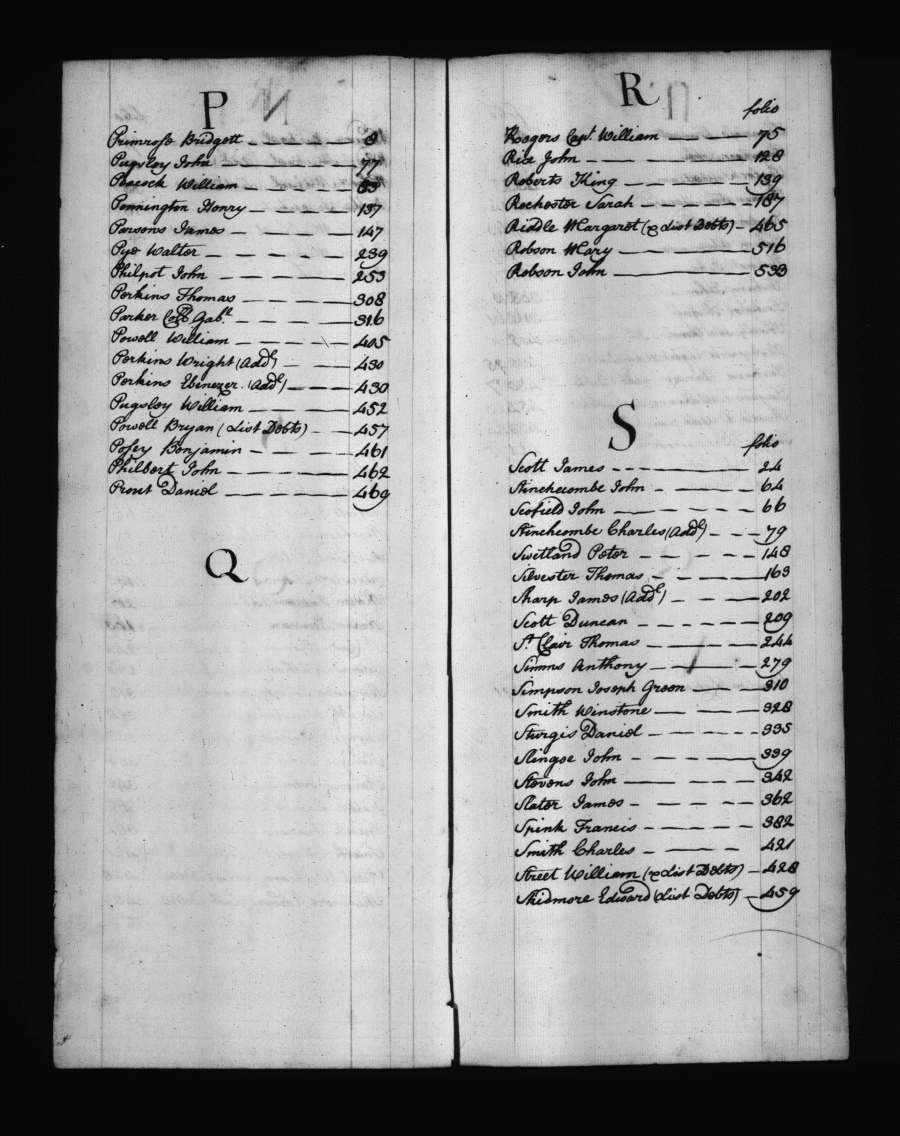 P
Primrose Bridgett 8
Pugsley John 77
Peacock William 83
Pennington Henry 137
Parsons James 147
Pye Walter 239
Philpot John 253
Perkins Thomas 308
Parker Coll Gabll 316
Powell William 405
Perkins Wright (Add) 430
Perkins Ebenezer (Add) 430
Pugsley William 452
Powell Bryan (List Debts) 457
Posey Benjamin 461
Philbert John 462
Prout Daniel 469
Q
R
folio
Rogers Capt William 75
Rix John 128
Roberts King 139
Rochester Sarah 187
Riddle Margaret (& List Debts) 465
Robson Mary 516
Robson John 533
S
folio
Scott James 24
Stinchecombe John 64
Scofield John 66
Stinchcombe Charles (Add) 79
Swetland Peter 148
Silvester Thomas 163
Sharp James (Add) 202
Scott Duncan 209
St Clair Thomas 244
Simms Anthony 279
Simpson Joseph Green 310
Smith Winstone 328
Sturgis Daniel 335
Slingse John 339
Stevens John 342
Slater James 362
Spink Francis 382
Smith Charles 421
Street William (& List Debts) 428
Skidmore Edward (List Debts) 459